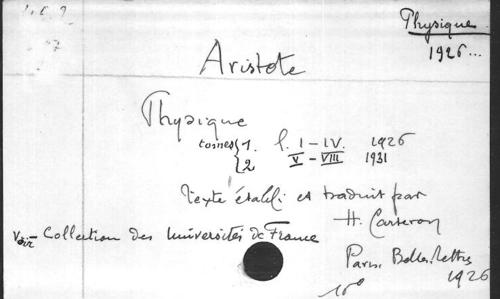 Physique
1926...
Aristote
Physique
tomes { 1. l. I – IV. 1926
2 V – VIII 1931
Texte établi et traduit par
H. Carteron
Voir Collection des Universités de France
Paris, Belles-lettres
1926